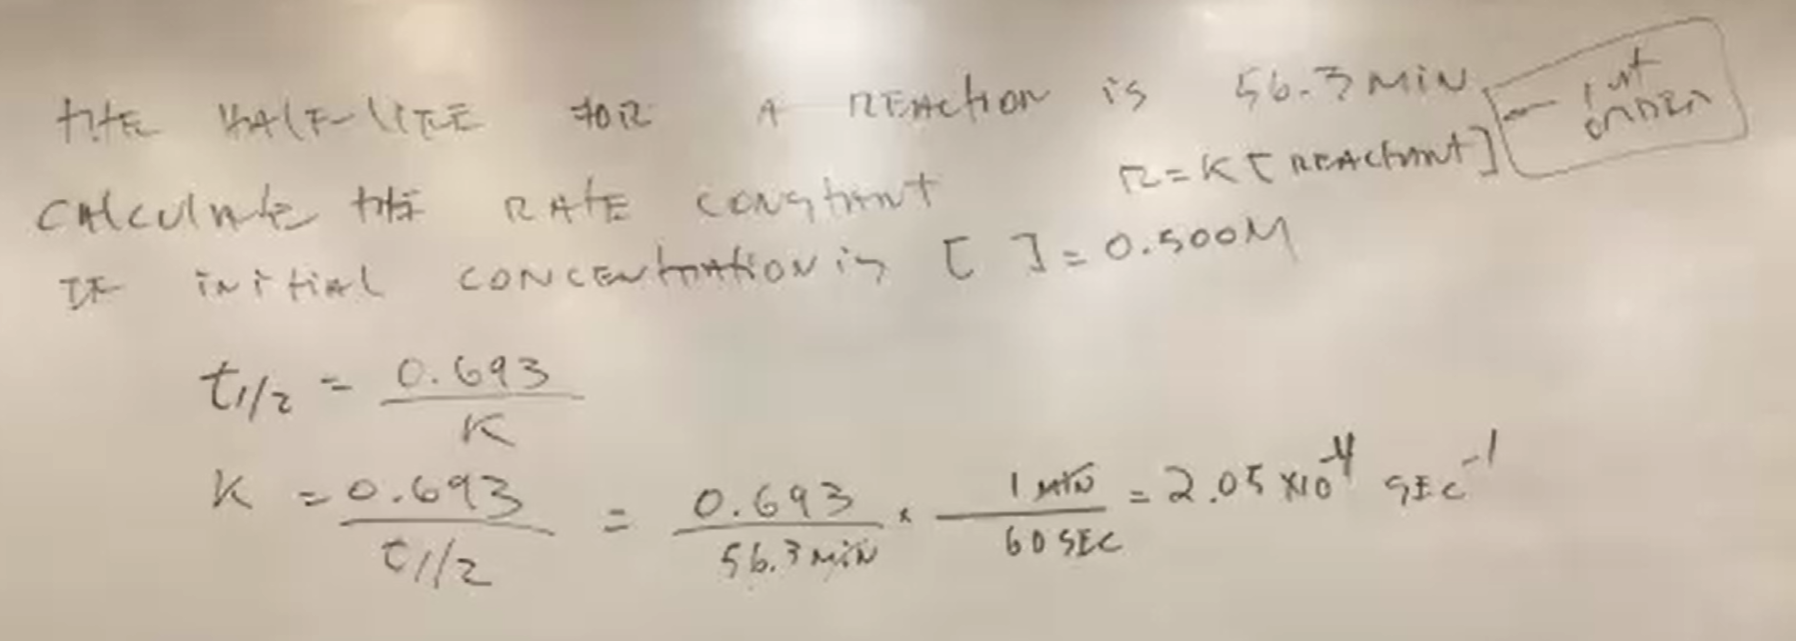 THE HALF-LIFE FOR A REACTION is 56.3 MIN
1st ORDER
CALCULATE THE RATE CONSTANT R = K [REACTANT]
IF INITIAL CONCENTRATION is [ ] = 0.500M
t1/2 = 0.693 / K
K = 0.693 / t1/2 = 0.693 / 56.3 MIN × 1 MIN / 60 SEC = 2.05 x10^-4 SEC^-1